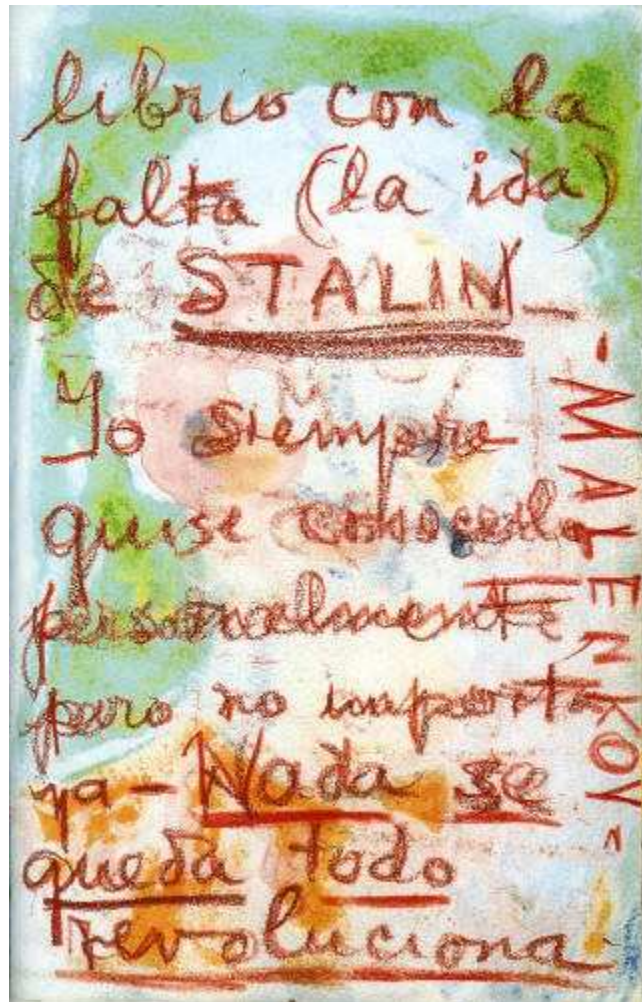 librio con la
falta (la ida)
de STALIN_
Yo siempre
quise conocerlo
personalmente
pero no importa
ya- Nada se
queda todo
revoluciona.
-MALENKOV-